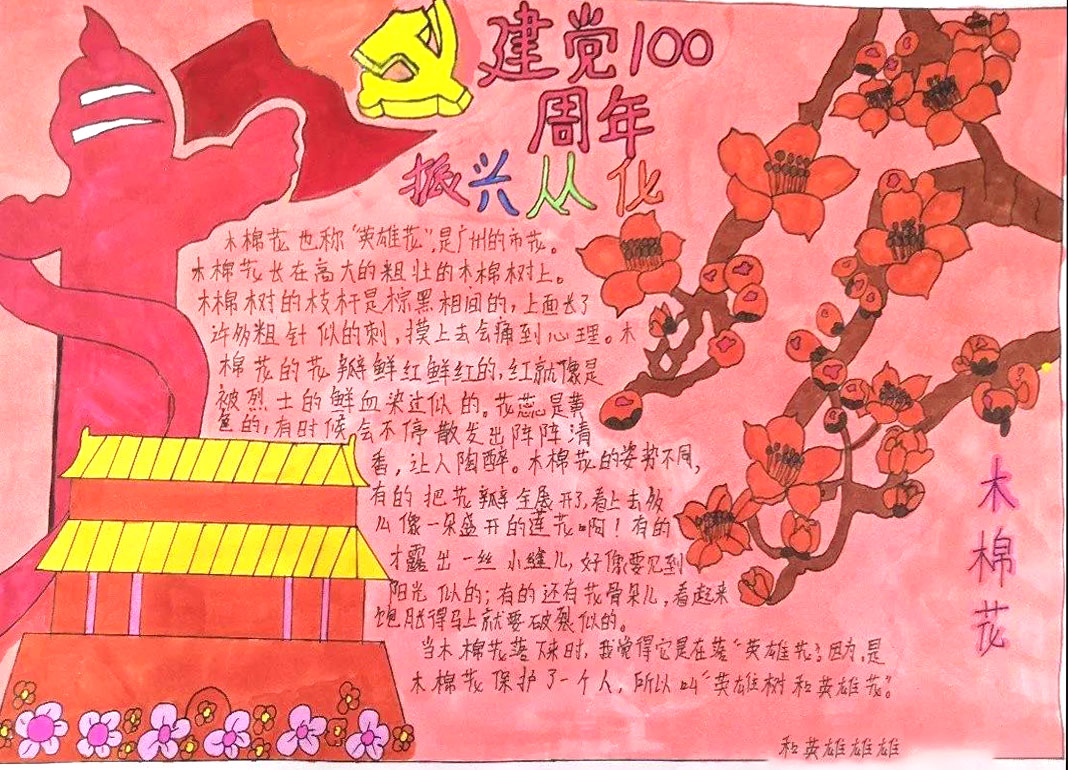 建党100
周年
振兴从化
木棉花也称“英雄花”，是广州的市花。
木棉花长在高大的粗壮的木棉树上。
木棉树的枝杆是棕黑相间的，上面长了
许多粗针似的刺，摸上去会痛到心理。木
棉花的花瓣鲜红鲜红的，红就像是
被烈士的鲜血染过似的。花蕊是黄
色的；有时候会不停散发出阵阵清
香，让人陶醉。木棉花的姿势不同，
有的把花瓣全展开了，看上去
么像一朵盛开的莲花啊！有的
才露出一丝小缝儿，好像要见到
阳光似的；有的还有花骨朵儿，看起来
饱胀得马上就要破裂似的。
当木棉花落下来时，我觉得它是在落“英雄花”，因为，是
木棉花保护了一个人，所以叫“英雄树和英雄花”。
木棉花
和英雄雄雄